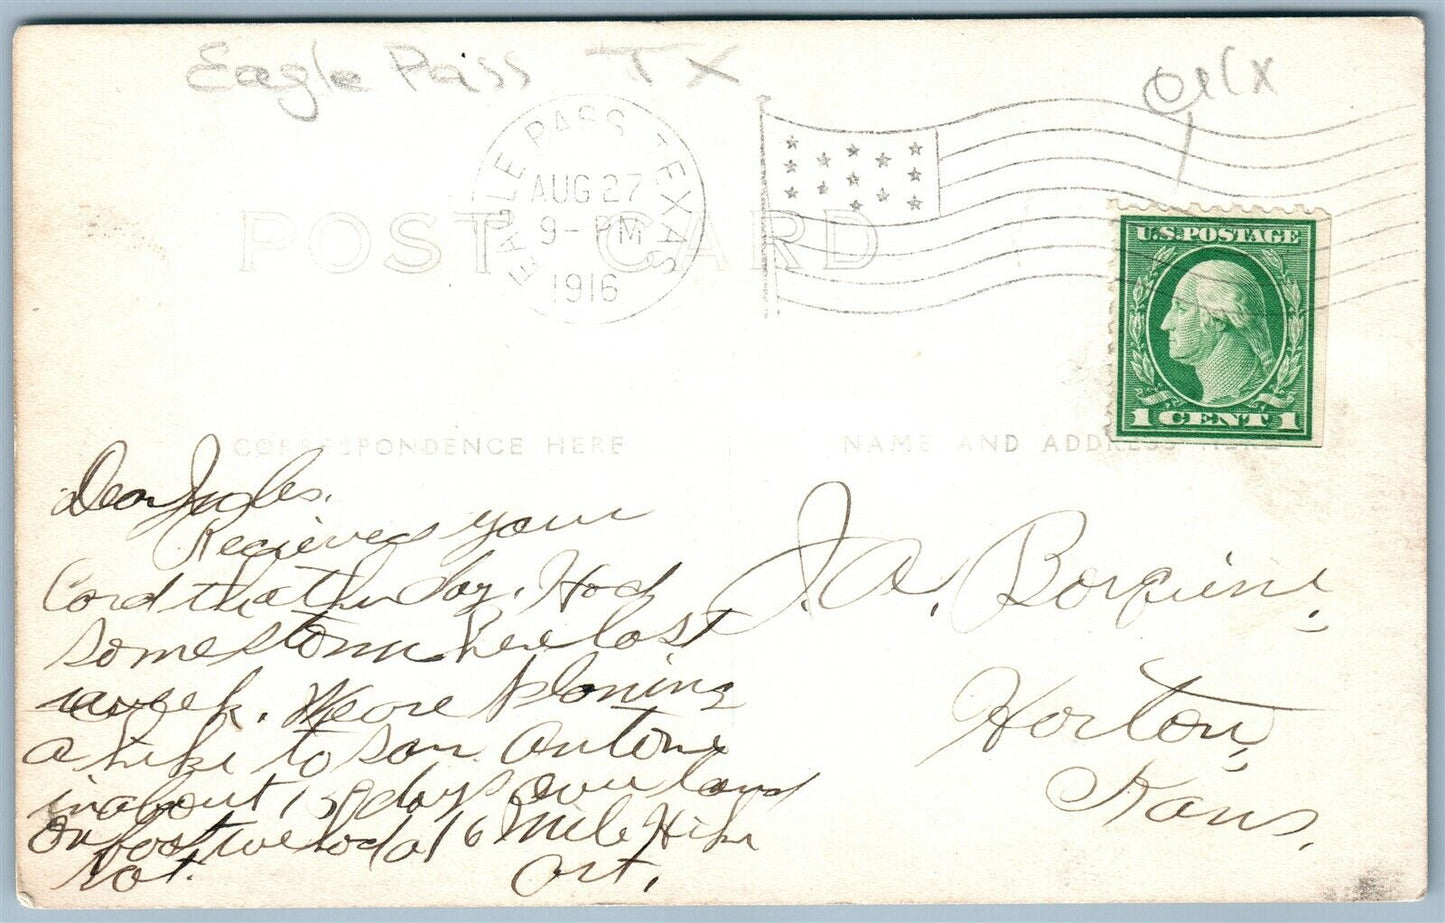 Eagle Pass TX
EAGLE PASS TEXAS
AUG 27
9- PM
1916
POST CARD
U.S. POSTAGE
1 CENT 1
CORRESPONDENCE HERE
NAME AND ADDRESS HERE
Dear
Recieved your
Card thather day. Had
some storm here last
week. We are planing
a hike to San Antone
in about 15 days over land
on foot we had a 16 Mile Hike
Sat. Art.
J. A.
Horton,
Kans.